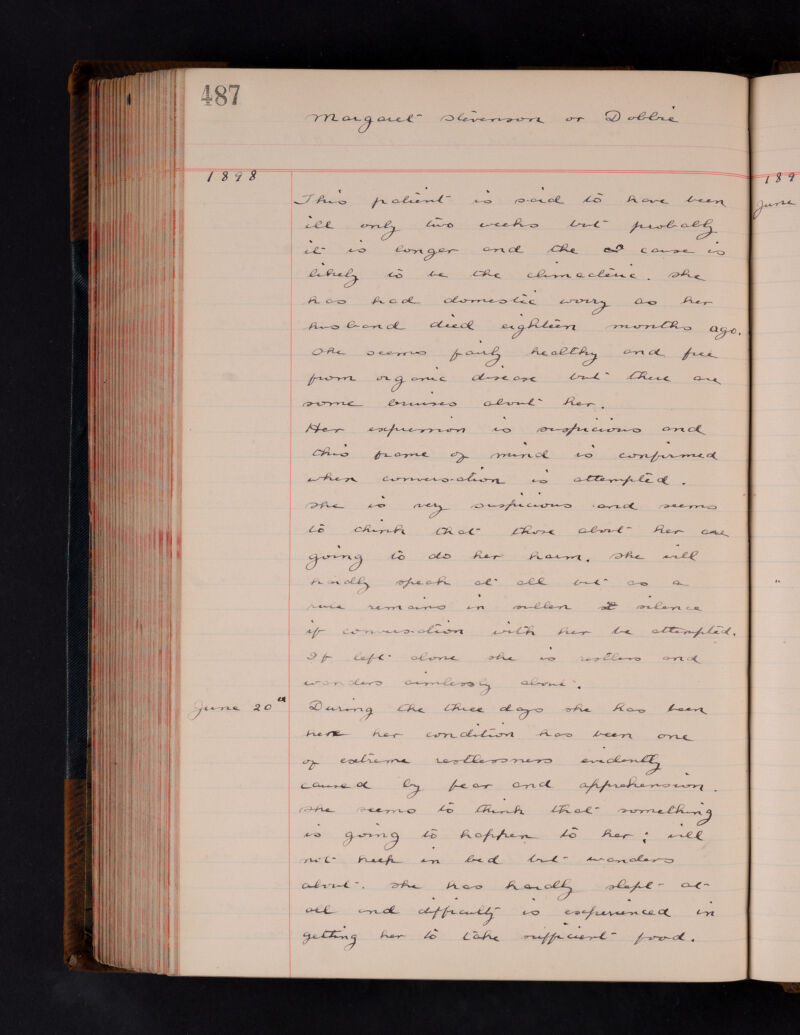 487
Margaret Stevenson or Dobbie
1898
This patient is said to have been
ill only two weeks but probably
it is longer and the cause is
likely to be the climacteric. She
has had domestic worry as her
husband died eighteen months ago.
She seems fairly healthy and free
from organic disease but there are
some bruises about her.
Her expression is suspicious and
this frame of mind is confirmed
when conversation is attempted.
She is very suspicious and seems
to think that those about her are
going to do her harm. She will
hardly speak at all but as a
rule remains in sullen silence
if conversation with her be attempted.
If left alone she is restless and
wanders aimlessly about.
June 20th During the three days she has been
here her condition has been one
of extreme restlessness evidently
caused by fear and apprehension.
She seems to think that something
is going to happen to her; will
not keep in bed but wanders
about. She has hardly slept at
all and difficulty is experienced in
getting her to take sufficient food.
189
June
"